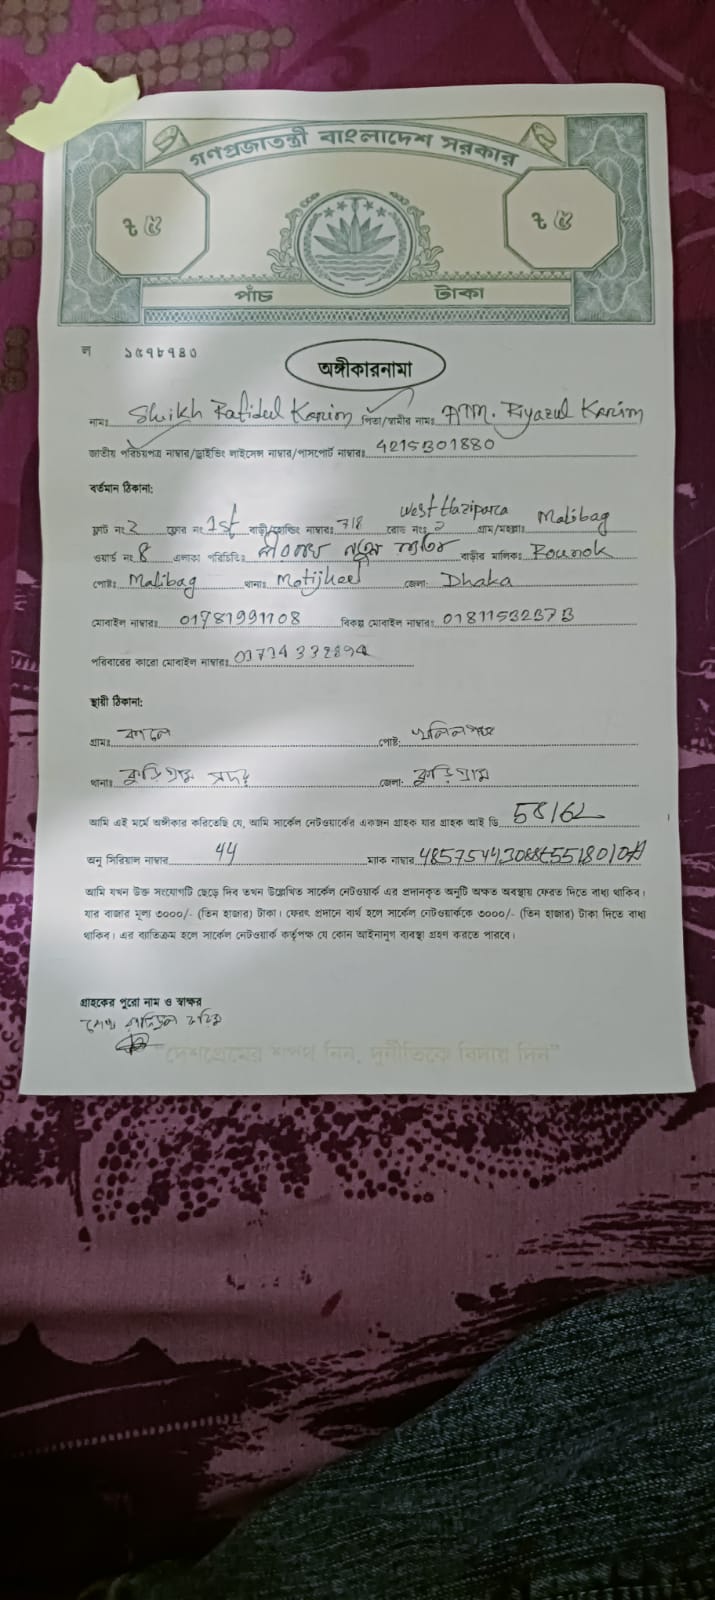 গণপ্রজাতন্ত্রী বাংলাদেশ সরকার
৳ ৫ ৳ ৫
পাঁচ টাকা
ল ১৫৭৮৭৪৩
অঙ্গীকারনামা
নামঃ Shuikh Rafidul Karim পিতা/স্বামীর নামঃ ATM. Riyazul Karim
জাতীয় পরিচয়পত্র নাম্বার/ড্রাইভিং লাইসেন্স নাম্বার/পাসপোর্ট নাম্বারঃ 4215301880
বর্তমান ঠিকানা:
ফ্লাট নং 2 ফ্লোর নং 1st বাড়ী/হোল্ডিং নাম্বারঃ 718 রোড নংঃ 2 West Haziparca গ্রাম/মহল্লাঃ Malibag
ওয়ার্ড নং 8 এলাকা পরিচিতিঃ বাড়ীর মালিক: Rounok
পোষ্টঃ Malibag থানাঃ Motijheel জেলা: Dhaka
মোবাইল নাম্বারঃ 01781991108 বিকল্প মোবাইল নাম্বারঃ
পরিবারের কারো মোবাইল নাম্বারঃ
স্থায়ী ঠিকানা:
গ্রামঃ পোষ্ট: খলিলগঞ্জ
থানাঃ কুড়িগ্রাম সদর জেলা: কুড়িগ্রাম
আমি এই মর্মে অঙ্গীকার করিতেছি যে, আমি সার্কেল নেটওয়ার্কের একজন গ্রাহক যার গ্রাহক আই ডি
অনু সিরিয়াল নাম্বার 44 ম্যাক নাম্বার
আমি যখন উক্ত সংযোগটি ছেড়ে দিব তখন উল্লেখিত সার্কেল নেটওয়ার্ক এর প্রদানকৃত অনুটি অক্ষত অবস্থায় ফেরত দিতে বাধ্য থাকিব।
যার বাজার মূল্য ৩০০০/- (তিন হাজার) টাকা। ফেরৎ প্রদানে ব্যর্থ হলে সার্কেল নেটওয়ার্ককে ৩০০০/- (তিন হাজার) টাকা দিতে বাধ্য
থাকিব। এর ব্যতিক্রম হলে সার্কেল নেটওয়ার্ক কর্তৃপক্ষ যে কোন আইনানুগ ব্যবস্থা গ্রহণ করতে পারবে।
গ্রাহকের পুরো নাম ও স্বাক্ষর
শেখ রাফিদুল করিম
"দেশপ্রেমের শপথ নিন, দুর্নীতিকে বিদায় দিন"